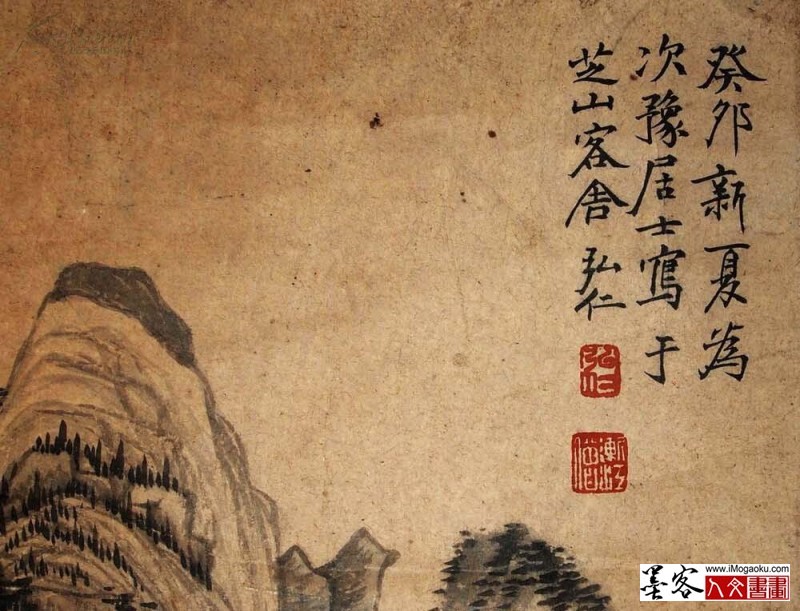 癸卯新夏為
次豫居士寫于
芝山客舍 弘仁
弘仁
漸江僧
墨客
www.iMogaoku.com
人文書畫